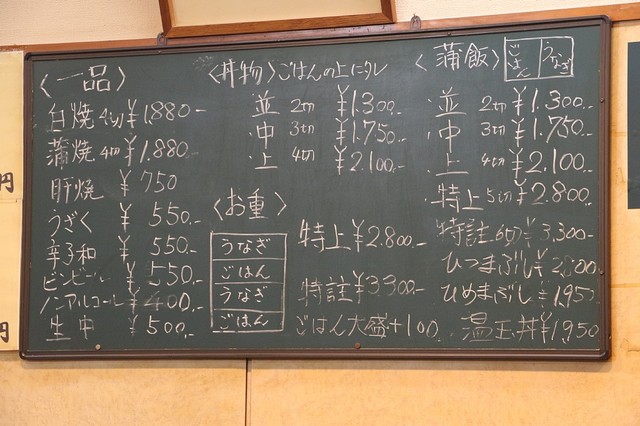 〈一品〉
白焼 4切 ¥1,880.-
蒲焼 4切 ¥1,880.-
肝焼 ¥750
うざく ¥550.-
辛子和 ¥550.-
ビンビール ¥550.-
ノンアルコール ¥400.-
生中 ¥500.-
〈丼物〉ごはんの上にタレ
並 2切 ¥1.300.-
中 3切 ¥1.750.-
上 4切 ¥2.100.-
〈お重〉
うなぎ
ごはん
うなぎ
ごはん
特上 ¥2.800.-
特註 ¥3300.-
ごはん大盛+100.
〈蒲飯〉
ごはん
うなぎ
並 2切 ¥1.300.-
中 3切 ¥1.750.-
上 4切 ¥2.100.-
特上 5切 ¥2.800.-
特註 6切 ¥3,300-
ひつまぶし ¥2,800-
ひめまぶし ¥1,950.-
温玉丼 ¥1,950
円
円